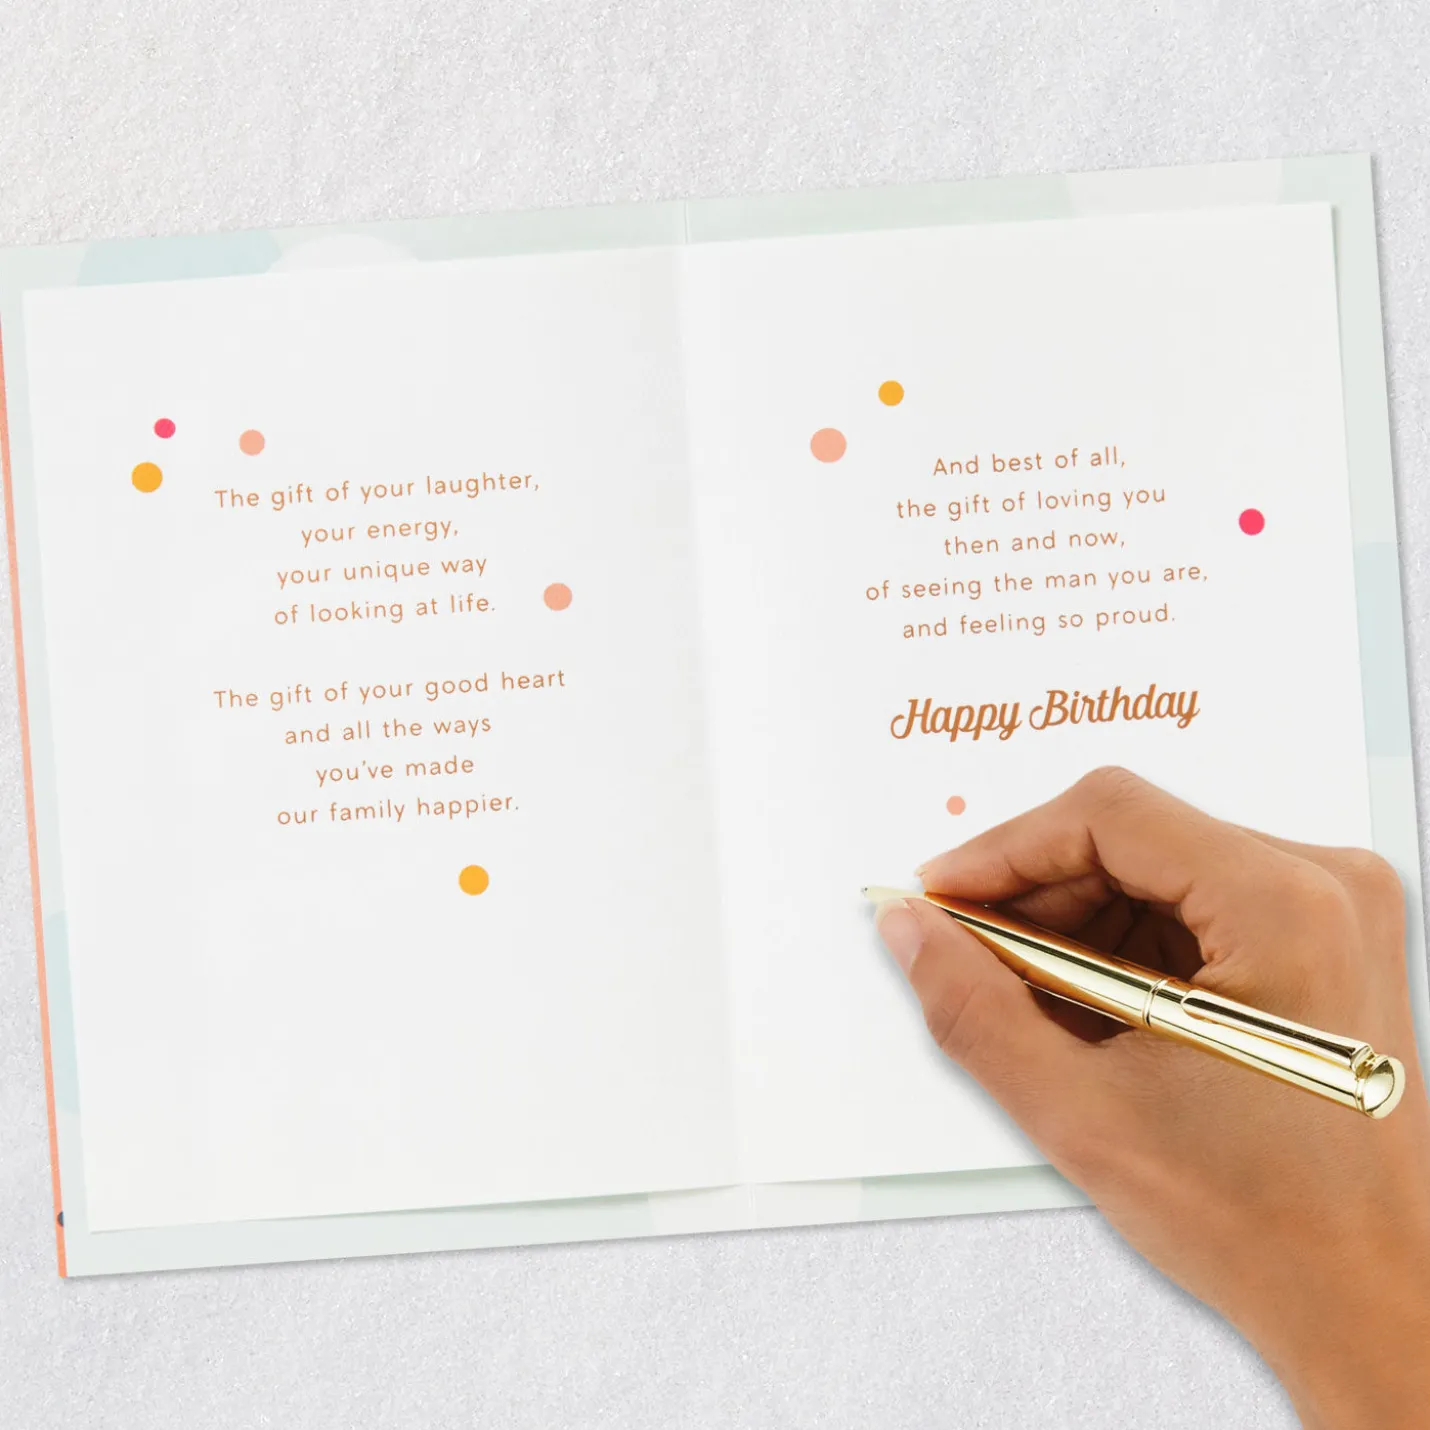 The gift of your laughter,
your energy,
your unique way
of looking at life.
The gift of your good heart
and all the ways
you've made
our family happier.
And best of all,
the gift of loving you
then and now,
of seeing the man you are,
and feeling so proud.
Happy Birthday